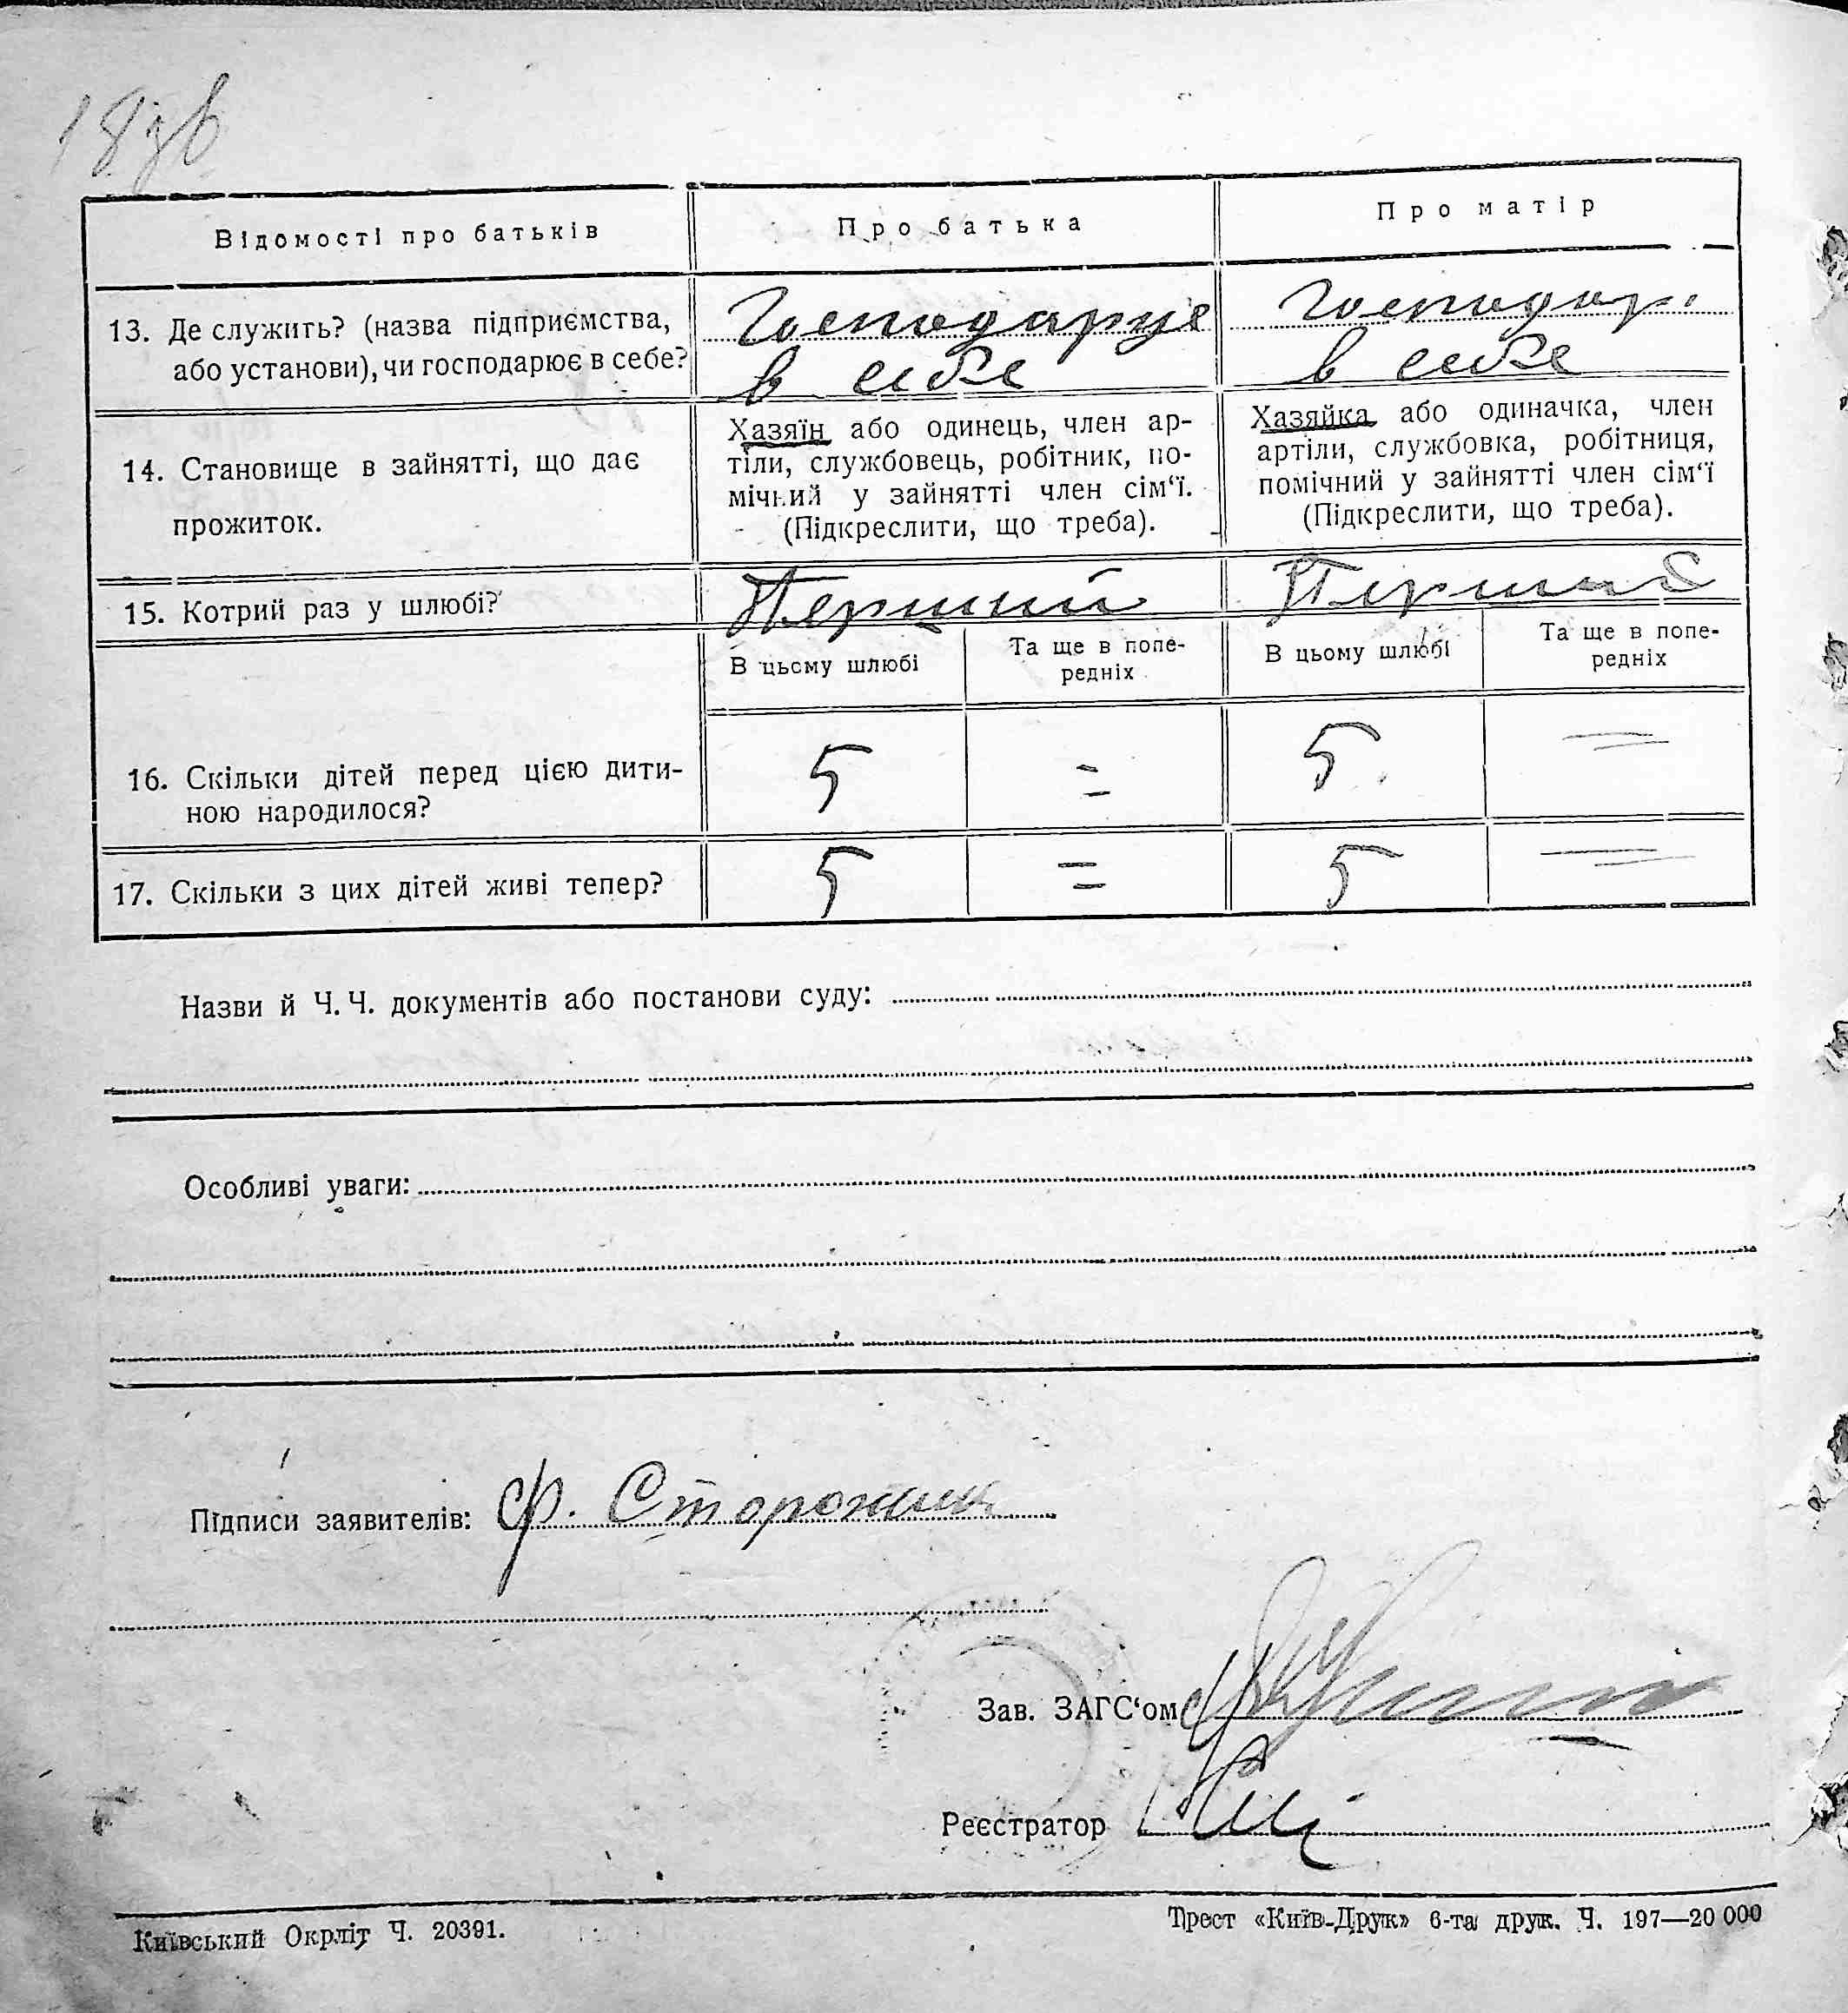 18зв
Відомості про батьків
Про батька
Про матір
13. Де служить? (назва підприємства,
або установи), чи господарює в себе?
Господарює
в себе
Господар.
в себе
14. Становище в зайнятті, що дає
прожиток.
Хазяїн або одинець, член ар-
тіли, службовець, робітник, по-
мічний у зайнятті член сім‘ї.
(Підкреслити, що треба).
Хазяйка або одиначка, член
артіли, службовка, робітниця,
помічний у зайнятті член сім‘ї
(Підкреслити, що треба).
15. Котрий раз у шлюбі?
Перший
Перший
В цьому шлюбі
Та ще в попе-
редніх
В цьому шлюбі
Та ще в попе-
редніх
16. Скільки дітей перед цією дити-
ною народилося?
5 = 5 =
17. Скільки з цих дітей живі тепер?
5 = 5 =
Назви й Ч. Ч. документів або постанови суду:
Особливі уваги:
Підписи заявителів: Ф. Сторожик
Зав. ЗАГС‘ом
Реєстратор
Київський Окрліт Ч. 20391.
Трест «Київ-Друк» 6-та друк. Ч. 197—20 000